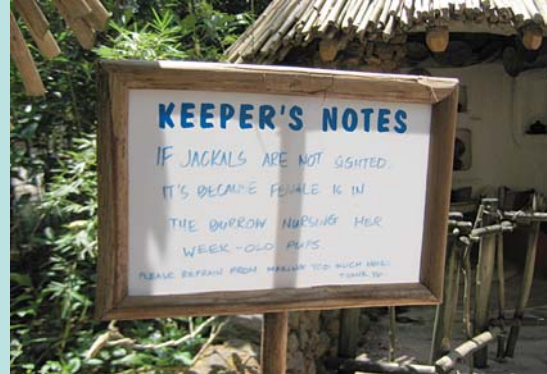 KEEPER'S NOTES
IF JACKALS ARE NOT SIGHTED.
IT'S BECAUSE FEMALE IS IN
THE BURROW NURSING HER
WEEK-OLD PUPS.
PLEASE REFRAIN FROM MAKING TOO MUCH NOISE.